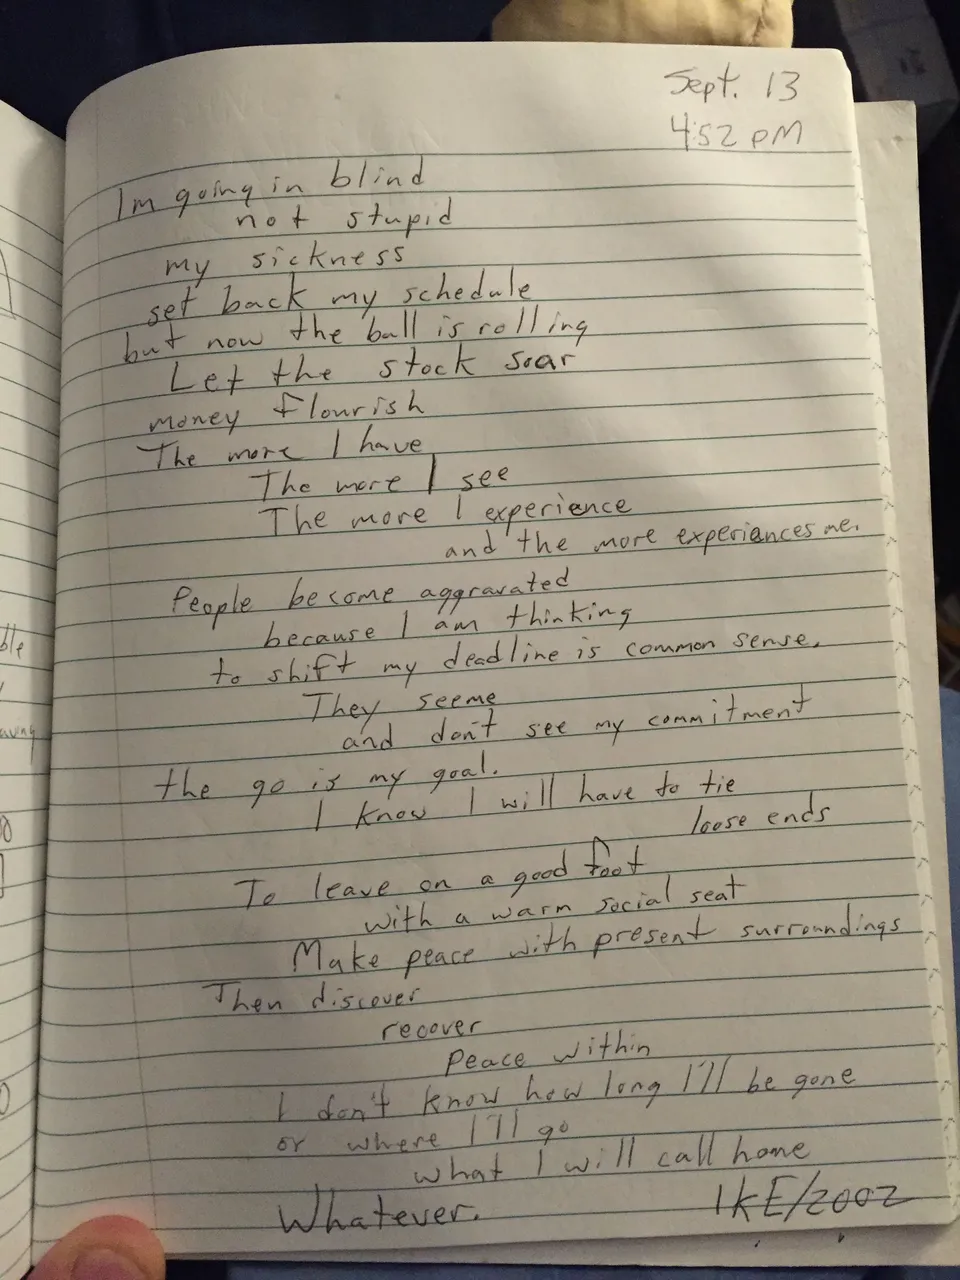 Sept. 13
4:52 PM
Im going in blind
not stupid
my sickness
set back my schedule
but now the ball is rolling
Let the stock soar
money flourish
The more I have
The more I see
The more I experience
and the more experiences me.
People become aggravated
because I am thinking
to shift my deadline is common sense.
They seeme
and don't see my commitment
the go is my goal.
I know I will have to tie
loose ends
To leave on a good foot
with a warm social seat
Make peace with present surroundings
Then discover
recover
Peace within
I don't know how long I'll be gone
or where I'll go
what I will call home
Whatever.
IKE/2002
ble
aving